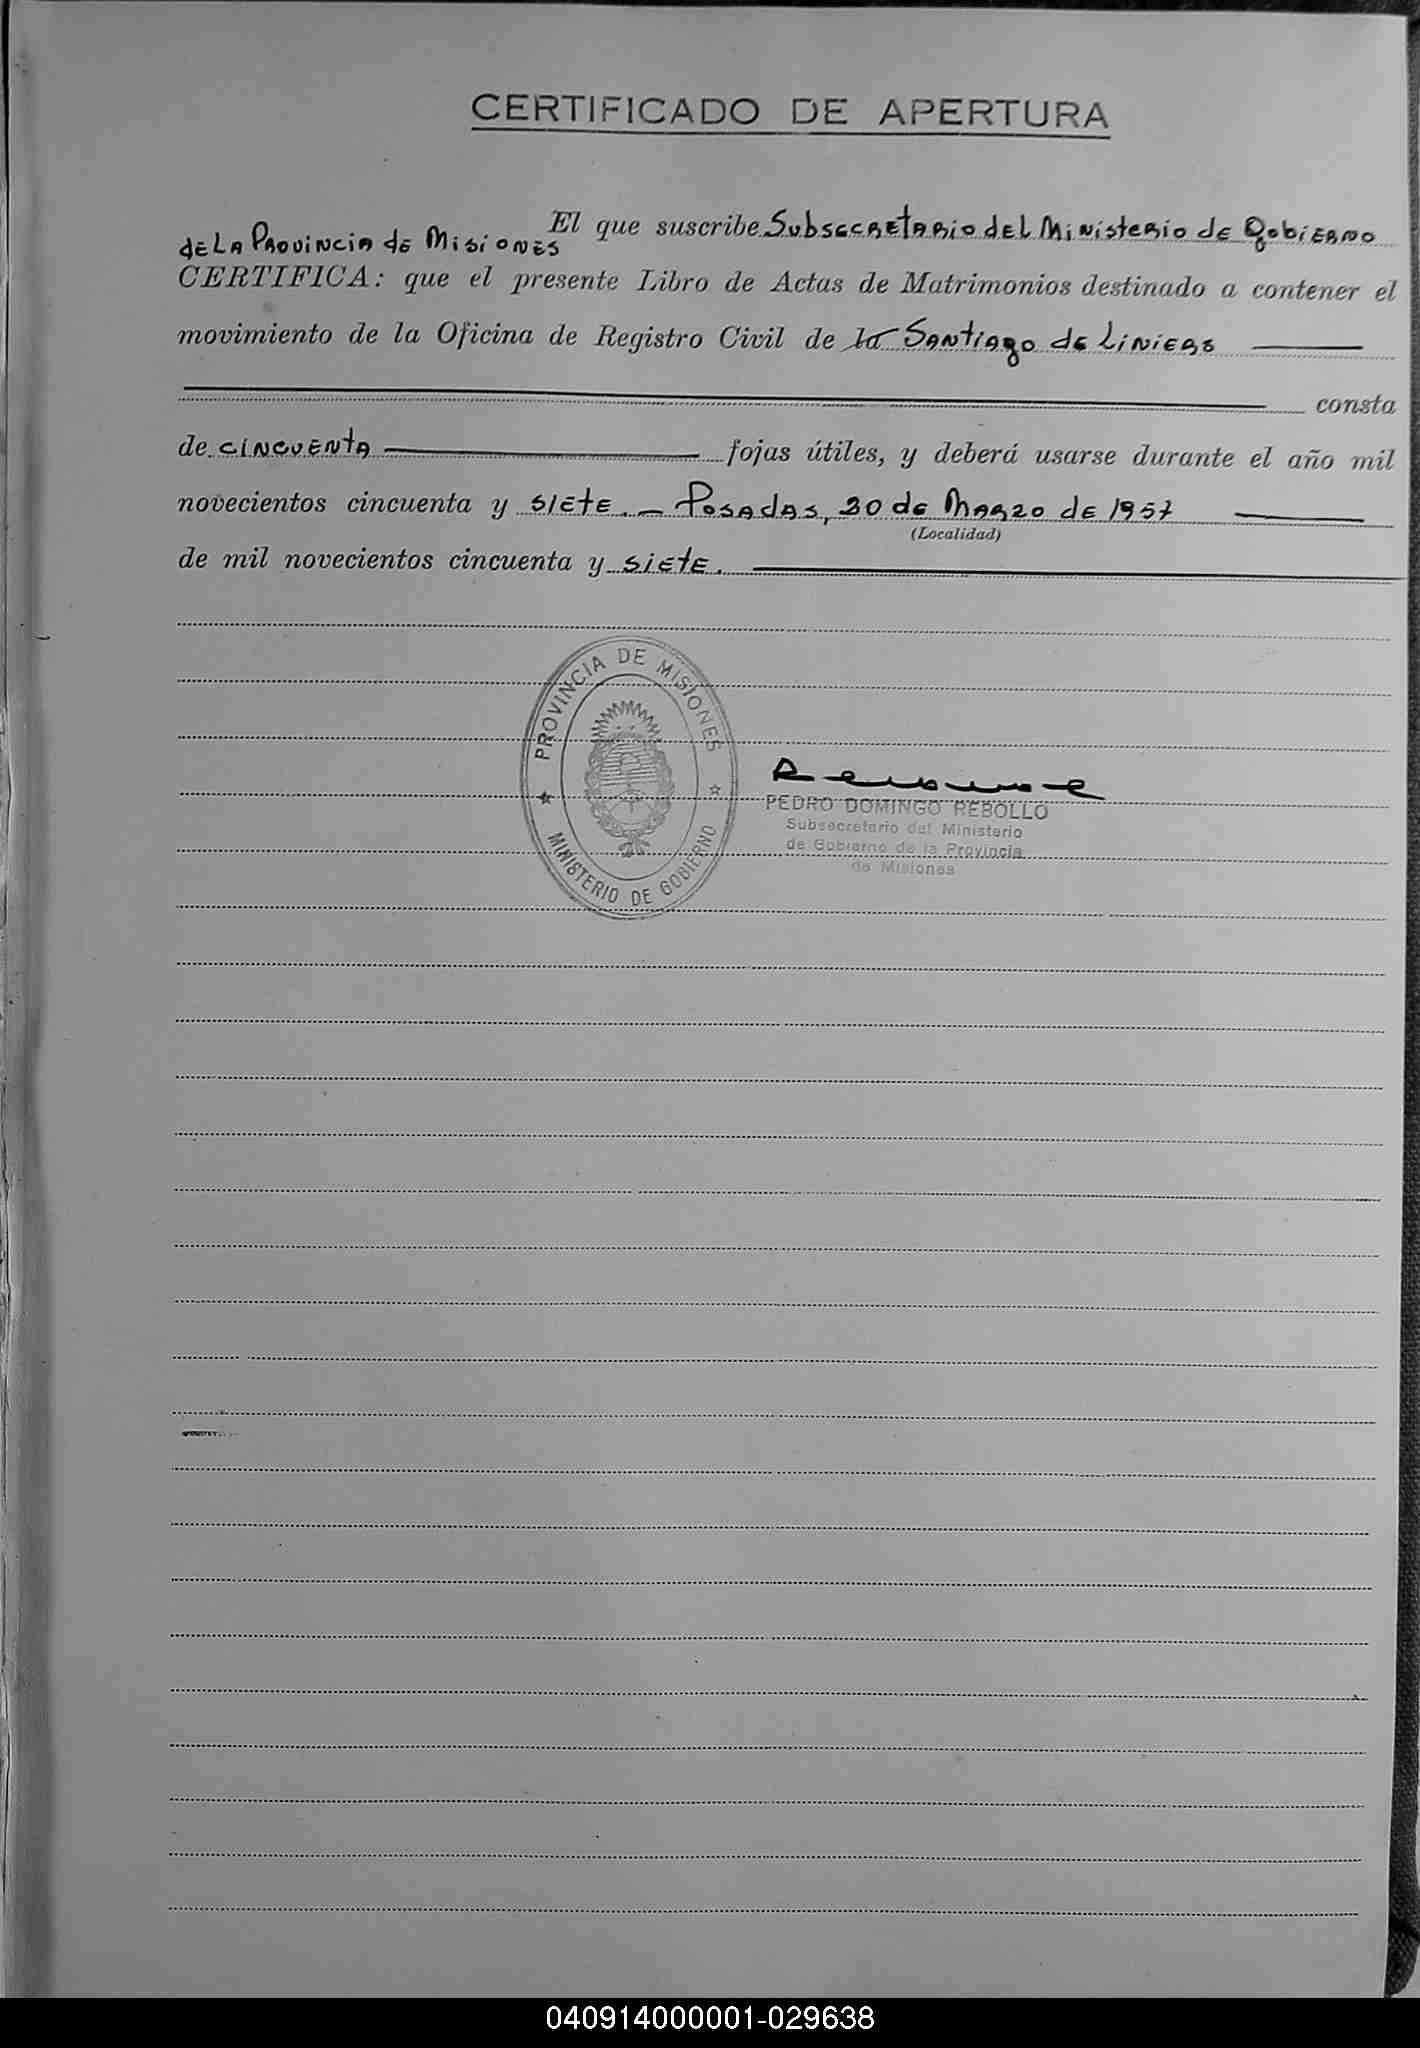 CERTIFICADO DE APERTURA
El que suscribe Subsecretario del Ministerio de Gobierno
de la Provincia de Misiones
CERTIFICA: que el presente Libro de Actas de Matrimonios destinado a contener el
movimiento de la Oficina de Registro Civil de la Santiago de Liniers
consta
de cincuenta fojas útiles, y deberá usarse durante el año mil
novecientos cincuenta y siete.- Posadas, 20 de Marzo de 1957
(Localidad)
de mil novecientos cincuenta y siete.
PROVINCIA DE MISIONES
MINISTERIO DE GOBIERNO
PEDRO DOMINGO REBOLLO
Subsecretario del Ministerio
de Gobierno de la Provincia
de Misiones
040914000001-029638